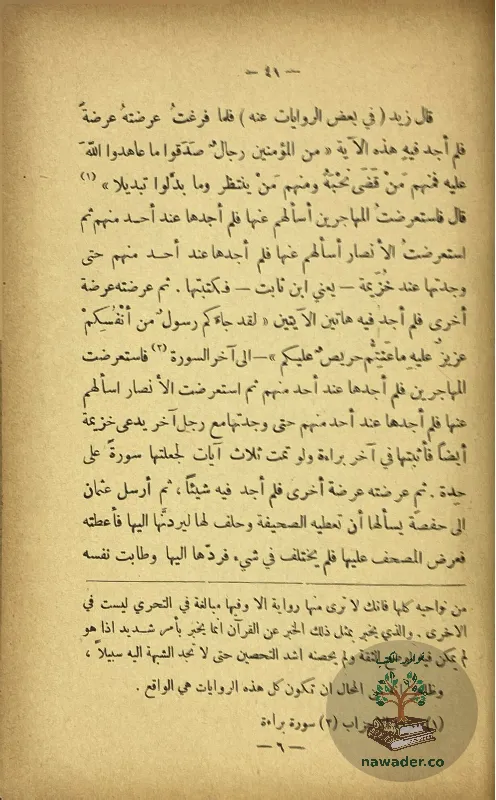 — ٤١ —
قال زيد ( في بعض الروايات عنه ) فلما فرغتُ عرضتهُ عرضةً
فلم أجد فيهِ هذه الآية « من المؤمنين رجالٌ صدَقوا ما عاهدوا اللهَ
عليه فمنهم مَنْ قَضَى نَحْبَهُ ومنهم مَنْ ينتظر وما بدَّلوا تبديلا » (١)
قال فاستعرضتُ المهاجرين أسألهم عنها فلم أجدها عند أحـد منهم ثم
استعرضتُ الأنصار أسألهم عنها فلم أجدها عند أحـد منهم حتى
وجدتها عند خُزيمة — يعني ابن ثابت — فكتبتها . ثم عرضته عرضة
أخرى فلم أجد فيه هاتين الآيتين « لقد جاءَكم رسولٌ من أنْفُسِكمْ
عزيزٌ عليهِ ماعَنِتُّم حريصٌ عليكم » — الى آخر السورة (٢) فاستعرضت
المهاجرين فلم أجدها عند أحد منهم ثم استعرضت الأنصار اسألهم
عنها فلم أجدها عند أحد منهم حتى وجدتها مع رجل آخر يدعى خزيمة
أيضاً فأثبتها في آخر براءة ولو تمت ثلاث آيات لجعلتها سورةً على
حِدة . ثم عرضته عرضة أخرى فلم أجد فيه شيئاً ، ثم أرسل عثمان
الى حفصة يسألها أن تعطيه الصحيفة وحلف لها ليردنَّها اليها فأعطته
فعرض المصحف عليها فلم يختلف في شيء فردّها اليها وطابت نفسه
من نواحيه كلها فانك لا ترى منها رواية الا وفيها مبالغة في التحري ليست في
الاخرى . والذي يخبر بمثل ذلك الخبر عن القرآن انما يخبر بأمر شـديد اذا هو
لم يكن فيه الثقة ولم يحصنه اشد التحصين حتى لا تجد الشبهة اليه سبيلاً ،
المحال ان تكون كل هذه الروايات هي الواقع .
(١) (٢) سورة براءة
— ٦ —
نوادر الكتب
nawader.co